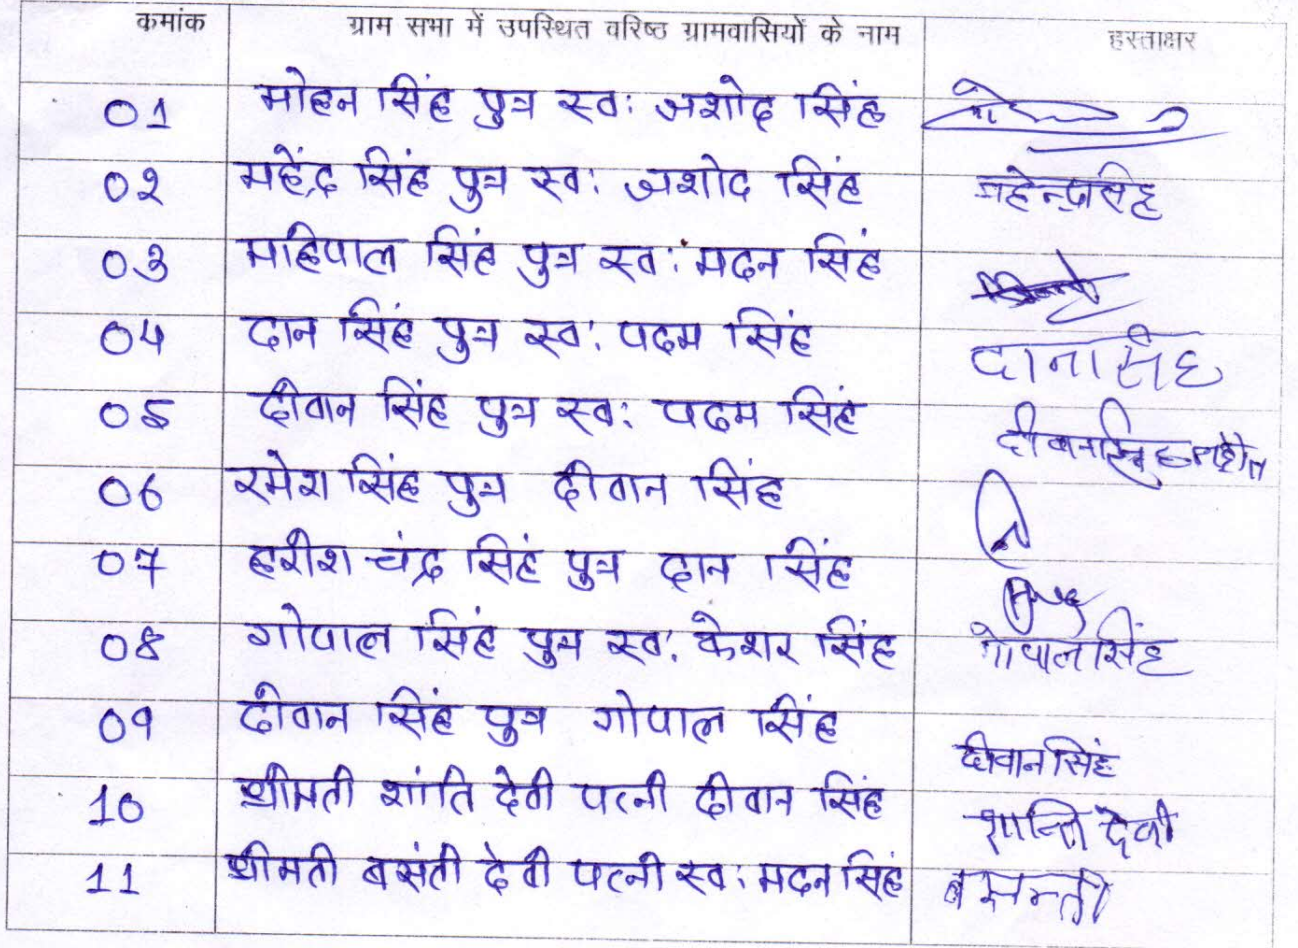 कमांक ग्राम सभा में उपस्थित वरिष्ठ ग्रामवासियों के नाम हस्ताक्षर
01 मोहन सिंह पुत्र स्व: अशोद सिंह
02 महेंद्र सिंह पुत्र स्व: अशोद सिंह महेन्द्रसिंह
03 महिपाल सिंह पुत्र स्व: मदन सिंह
04 दान सिंह पुत्र स्व: पदम सिंह दानसिंह
05 दीवान सिंह पुत्र स्व: पदम सिंह दीवानसिंह
06 रमेश सिंह पुत्र दीवान सिंह
07 हरीश चंद्र सिंह पुत्र दान सिंह
08 गोपाल सिंह पुत्र स्व: केशर सिंह गोपाल सिंह
09 दीवान सिंह पुत्र गोपाल सिंह दीवान सिंह
10 श्रीमती शांति देवी पत्नी दीवान सिंह शान्ति देवी
11 श्रीमती बसंती देवी पत्नी स्व: मदन सिंह बसन्ती